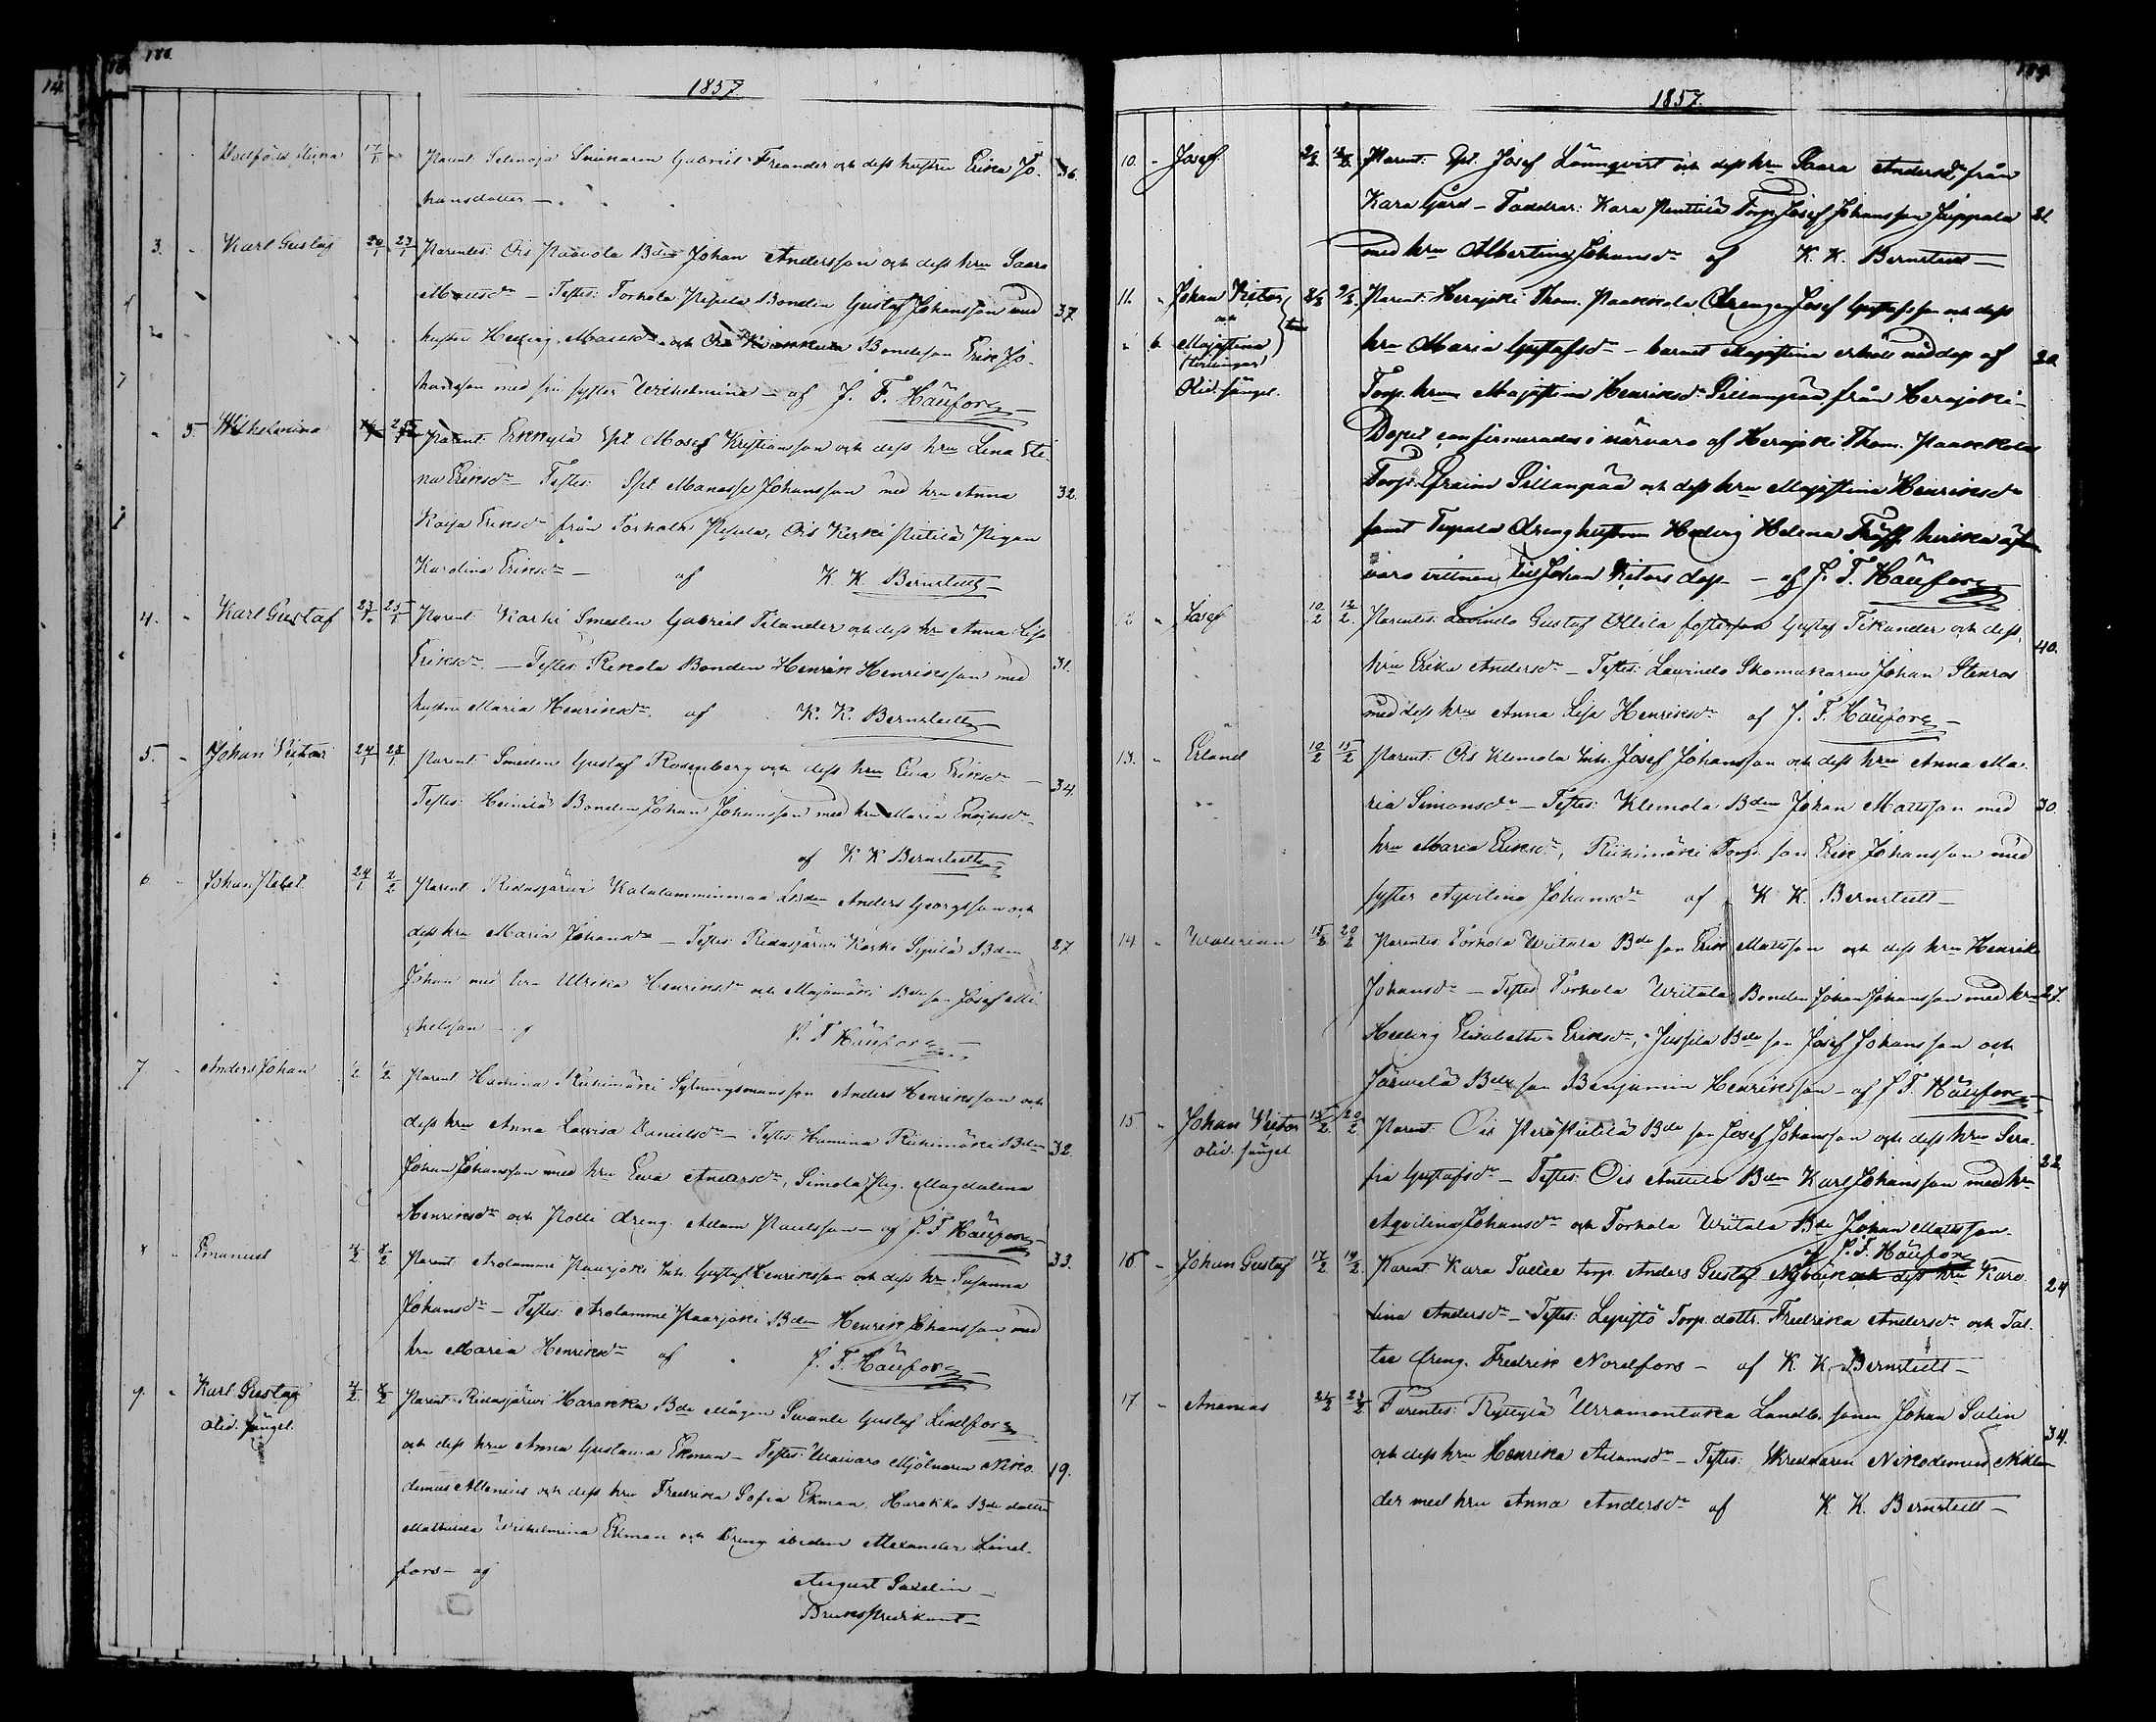 1857
Dödfödd flicka 17/1 Parent: Snickaren Gabriel Freander och dess hustru Erika Jo- 36.
hansdotter —
3. Karl Gustaf 20/1 23/1 Parentes: Ois Paavola Bden Johan Andersson och dess hru Saara
Mattsdr — Testes: Torhola Pesula Bonden Gustaf Johansson med 37.
hustru Hedvig Mattsdr och Ois Bondeson Erik Jo-
hansson med sin syster Wilhelmina — af J. F. Häufors
3. Wilhelmina 25/1 Parent: Erkkylä Spt Mosef Kristiansson och dess hru Lena Sti-
na Eriksdr — Testes: Spt Manasse Johansson med hru Anna 32.
Kaisa Eriksdr från Torhola Pesula, Ois Keski Pietilä Pigan
Karolina Eriksdr — af K. K. Bernstedt
4. Karl Gustaf 23/1 25/1 Parent: Karhi Smeden Gabriel Tilander och dess hru Anna Lisa
Eriksdr. — Testes: Rekola Bonden Henrik Henriksson med 31.
hustru Maria Henriksdr. af K. K. Bernstedt
5. Johan Viktor 24/1 28/1 Parent: Smeden Gustaf Rosenberg och dess hru Eva Eriksdr — 34.
Testes: Heinilä Bonden Johan Johansson med hru Maria Eriksdr —
af K K Bernstedt
6. Johan 24/1 2/2 Parent: Ridasjärwi Kalalamminmaa Anders Georgsson och
dess hru Maria Johansdr — Testes: Ridasjärwi Koski Sipilä Bden 27.
Johan med hru Ulrika Henriksdr och Majamäki Bde son Josef Mi-
chelsson — af J. F. Häufors
7. Anders Johan 1/2 1/2 Parent: Humina Riihimäki Sytningsmansson Anders Henriksson och
dess hru Anna Lovisa Danielsdr — Testes: Humina Riihimäki Bden 32.
Johan Johansson med hru Eva Andersdr, Simola Pig. Magdalena
Henriksdr och Polli dreng. Adam Paulsson — af J. F. Häufors
8. Emanuel 4/2 8/2 Parent: Arolammi Paarjoki Inh. Gustaf Henriksson och dess hru Susanna 33.
Johansdr — Testes: Arolammi Paarjoki Bden Henrik Johansson med
hru Maria Henriksdr af J. F. Häufors
9. Karl Gustaf 4/2 8/2 Parent: Ridasjärwi Harakka Bde Mågen Swante Gustaf Lindfors
och dess hru Anna Gustava Ekman — Testes: Mjölnaren Niko- 19.
demus Allenius och dess hru Fredrika Sofia Ekman, Harakka Bde dotter
Mathilda Wilhelmina Ekman och Dreng ibidem Alexander Lind-
fors — af August Saxelin
Brukspredikant —
1857.
10. Josef Parent: Spt. Josef Lönnqvist och dess hru Saara Andersdr från
Kara Gård — Faddrar: Kara Penttilä Torp. Josef Johansson Juppala
med hru Albertina Johansdr af K. K. Bernstedt —
11. Johan Viktor 8/2 9/2 Parent: Herajoki Thom. Paakkola drengen Josef Gustafsson och dess
och Majastina hru Maria Gustafsdr — barnet Majastina erhöll nöddop af 20.
Torp. hrun Majastina Henriksdr Sillanpää från Herajoki —
Dopet confirmerades i närvaro af Herajoki Thom. Paakkola
Torp. Efraim Sillanpää och dess hru Majastina Henriksdr
samt Tepala dreng hustrun Hedvig Helena hvilka äfven
voro vittnen till Johan Viktors dop — af J. F. Häufors
12 Josef 10/2 12/2. Parentes: Gustaf Ollila fosterson Gustaf Tikander och dess 40.
hru Erika Andersdr — Testes: Skomakaren Johan Stenros
med dess hru Anna Lisa Henriksdr af J. F. Häufors —
13. Erland 10/2 15/2 Parent: Ois Klemola Inh. Josef Johansson och dess hru Anna Ma-
ria Simonsdr — Testes: Klemola Bden Johan Mattsson med 30.
hru Maria Eriksdr, Riihimäki Torp. son Erik Johansson med
syster Aqvilina Johansdr af K K. Bernstedt —
14 Walerian 15/2 20/2 Parentes: Torhola Wiitala Bde son Erik Mattsson och dess hru Henrika
Johansdr — Testes: Torhola Wiitala Bonden Johan Johansson med hru 27.
Hedvig Elisabeth Eriksdr, Jussila Bde son Josef Johansson och
Järwelä Bde son Benjamin Henriksson — af J. F. Häufors —
15. Johan Viktor 15/2. 20/2 Parent: Ois Perä Pietilä Bde son Josef Johansson och dess hru Sera-
fia Gustafsdr — Testes: Ois Anttila Bden Karl Johansson med hru 22
Aqvilina Johansdr och Torhola Wiitala Bde Johan Mattsson —
af J. F. Häufors
16 Johan Gustaf 17/2 19/2. Parent: Kara Tallée torp. Anders Gustaf och dess hru Karo- 24
lina Andersdr — Testes: Lepistö Torp. dottr. Fredrika Andersdr och Tal-
lée dreng. Fredrik Nordfors — af K. K. Bernstedt —
17. Ananias Parentes: Ryttylä Urramontuka Landb. sonen Johan Salin
och dess hru Henrika Adamsdr — Testes: Skreddaren Nikodemus Niklan- 34.
der med hru Anna Andersdr af K. K. Bernstedt —